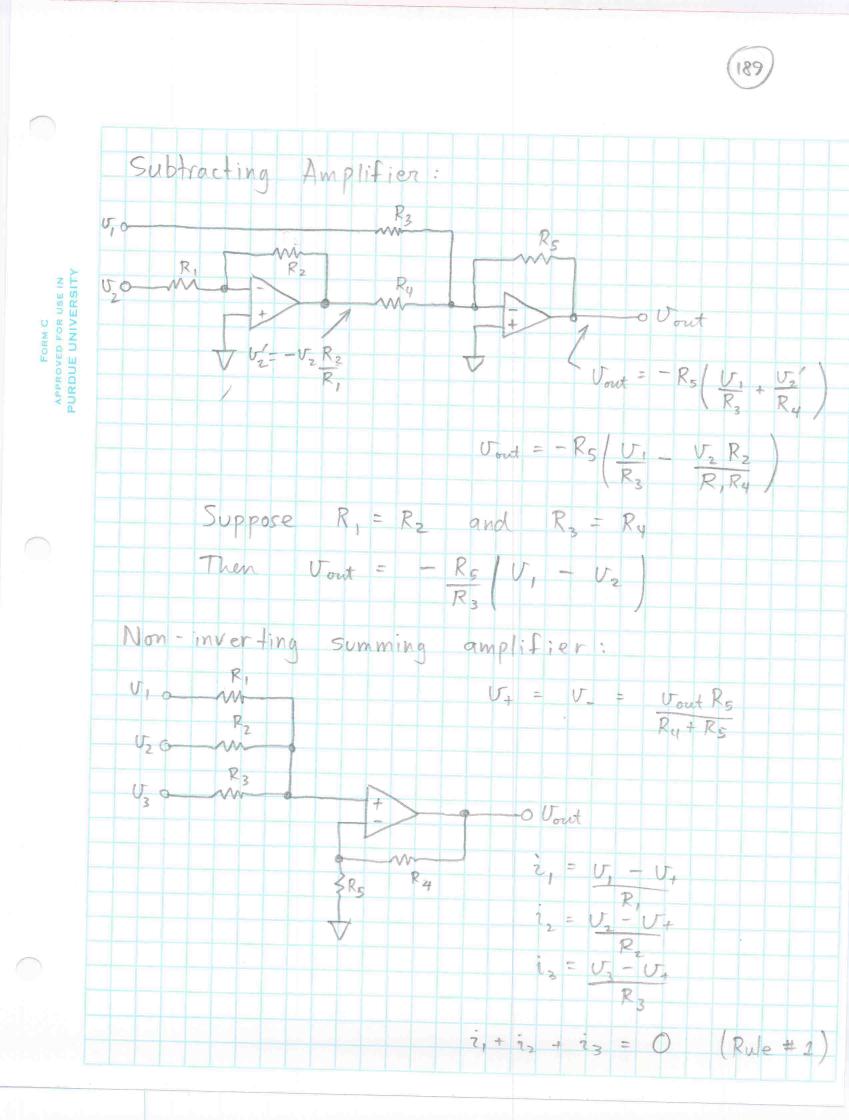 189
FORM C
APPROVED FOR USE IN
PURDUE UNIVERSITY
Subtracting Amplifier:
v₁
R₃
R₅
v₂
R₁
R₂
R₄
-
+
-
+
vout
v₂' = -v₂ R₂/R₁
vout = -R₅ ( v₁/R₃ + v₂'/R₄ )
vout = -R₅ ( v₁/R₃ - v₂ R₂/R₁R₄ )
Suppose R₁ = R₂ and R₃ = R₄
Then vout = - R₅/R₃ ( v₁ - v₂ )
Non-inverting summing amplifier:
v₁
R₁
v₊ = v₋ = vout R₅/R₄ + R₅
v₂
R₂
v₃
R₃
+
-
vout
R₄
R₅
i₁ = v₁ - v₊/R₁
i₂ = v₂ - v₊/R₂
i₃ = v₃ - v₊/R₃
i₁ + i₂ + i₃ = 0 (Rule #1)